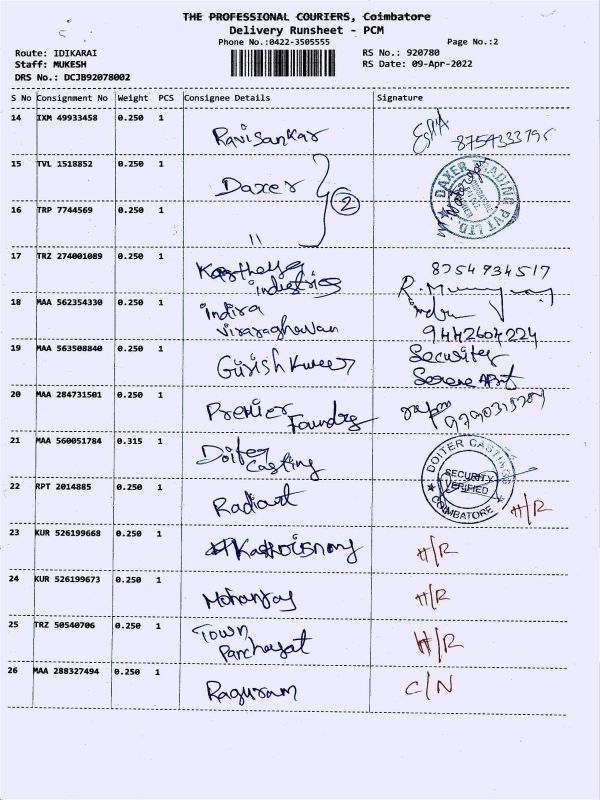 THE PROFESSIONAL COURIERS, Coimbatore
Delivery Runsheet - PCM
Phone No.:0422-3505555 Page No.:2
Route: IDIKARAI RS No.: 920780
Staff: MUKESH RS Date: 09-Apr-2022
DRS No.: DCJB92078002
S No Consignment No Weight PCS Consignee Details Signature
14 IXM 49933458 0.250 1
Ravisankar 8754333795
15 TVL 1518852 0.250 1
Daxer
2
16 TRP 7744569 0.250 1
"
DAXER TRADING PVT LTD.
17 TRZ 274001089 0.250 1
industries
8754934517
18 MAA 562354330 0.250 1
indira
viraraghavan
9442607224
19 MAA 563508840 0.250 1
Security
Girish Kumar
Serene Apt
20 MAA 284731501 0.250 1
Premier
Foundry
21 MAA 560051784 0.315 1
Doiter
Casting
DOITER CASTINGS
SECURITY
VERIFIED
COIMBATORE
22 RPT 2014885 0.250 1
Radiant H/R
23 KUR 526199668 0.250 1
H/R
24 KUR 526199673 0.250 1
H/R
25 TRZ 50540706 0.250 1
Town
Panchayat H/R
26 MAA 288327494 0.250 1
Raguram C/N